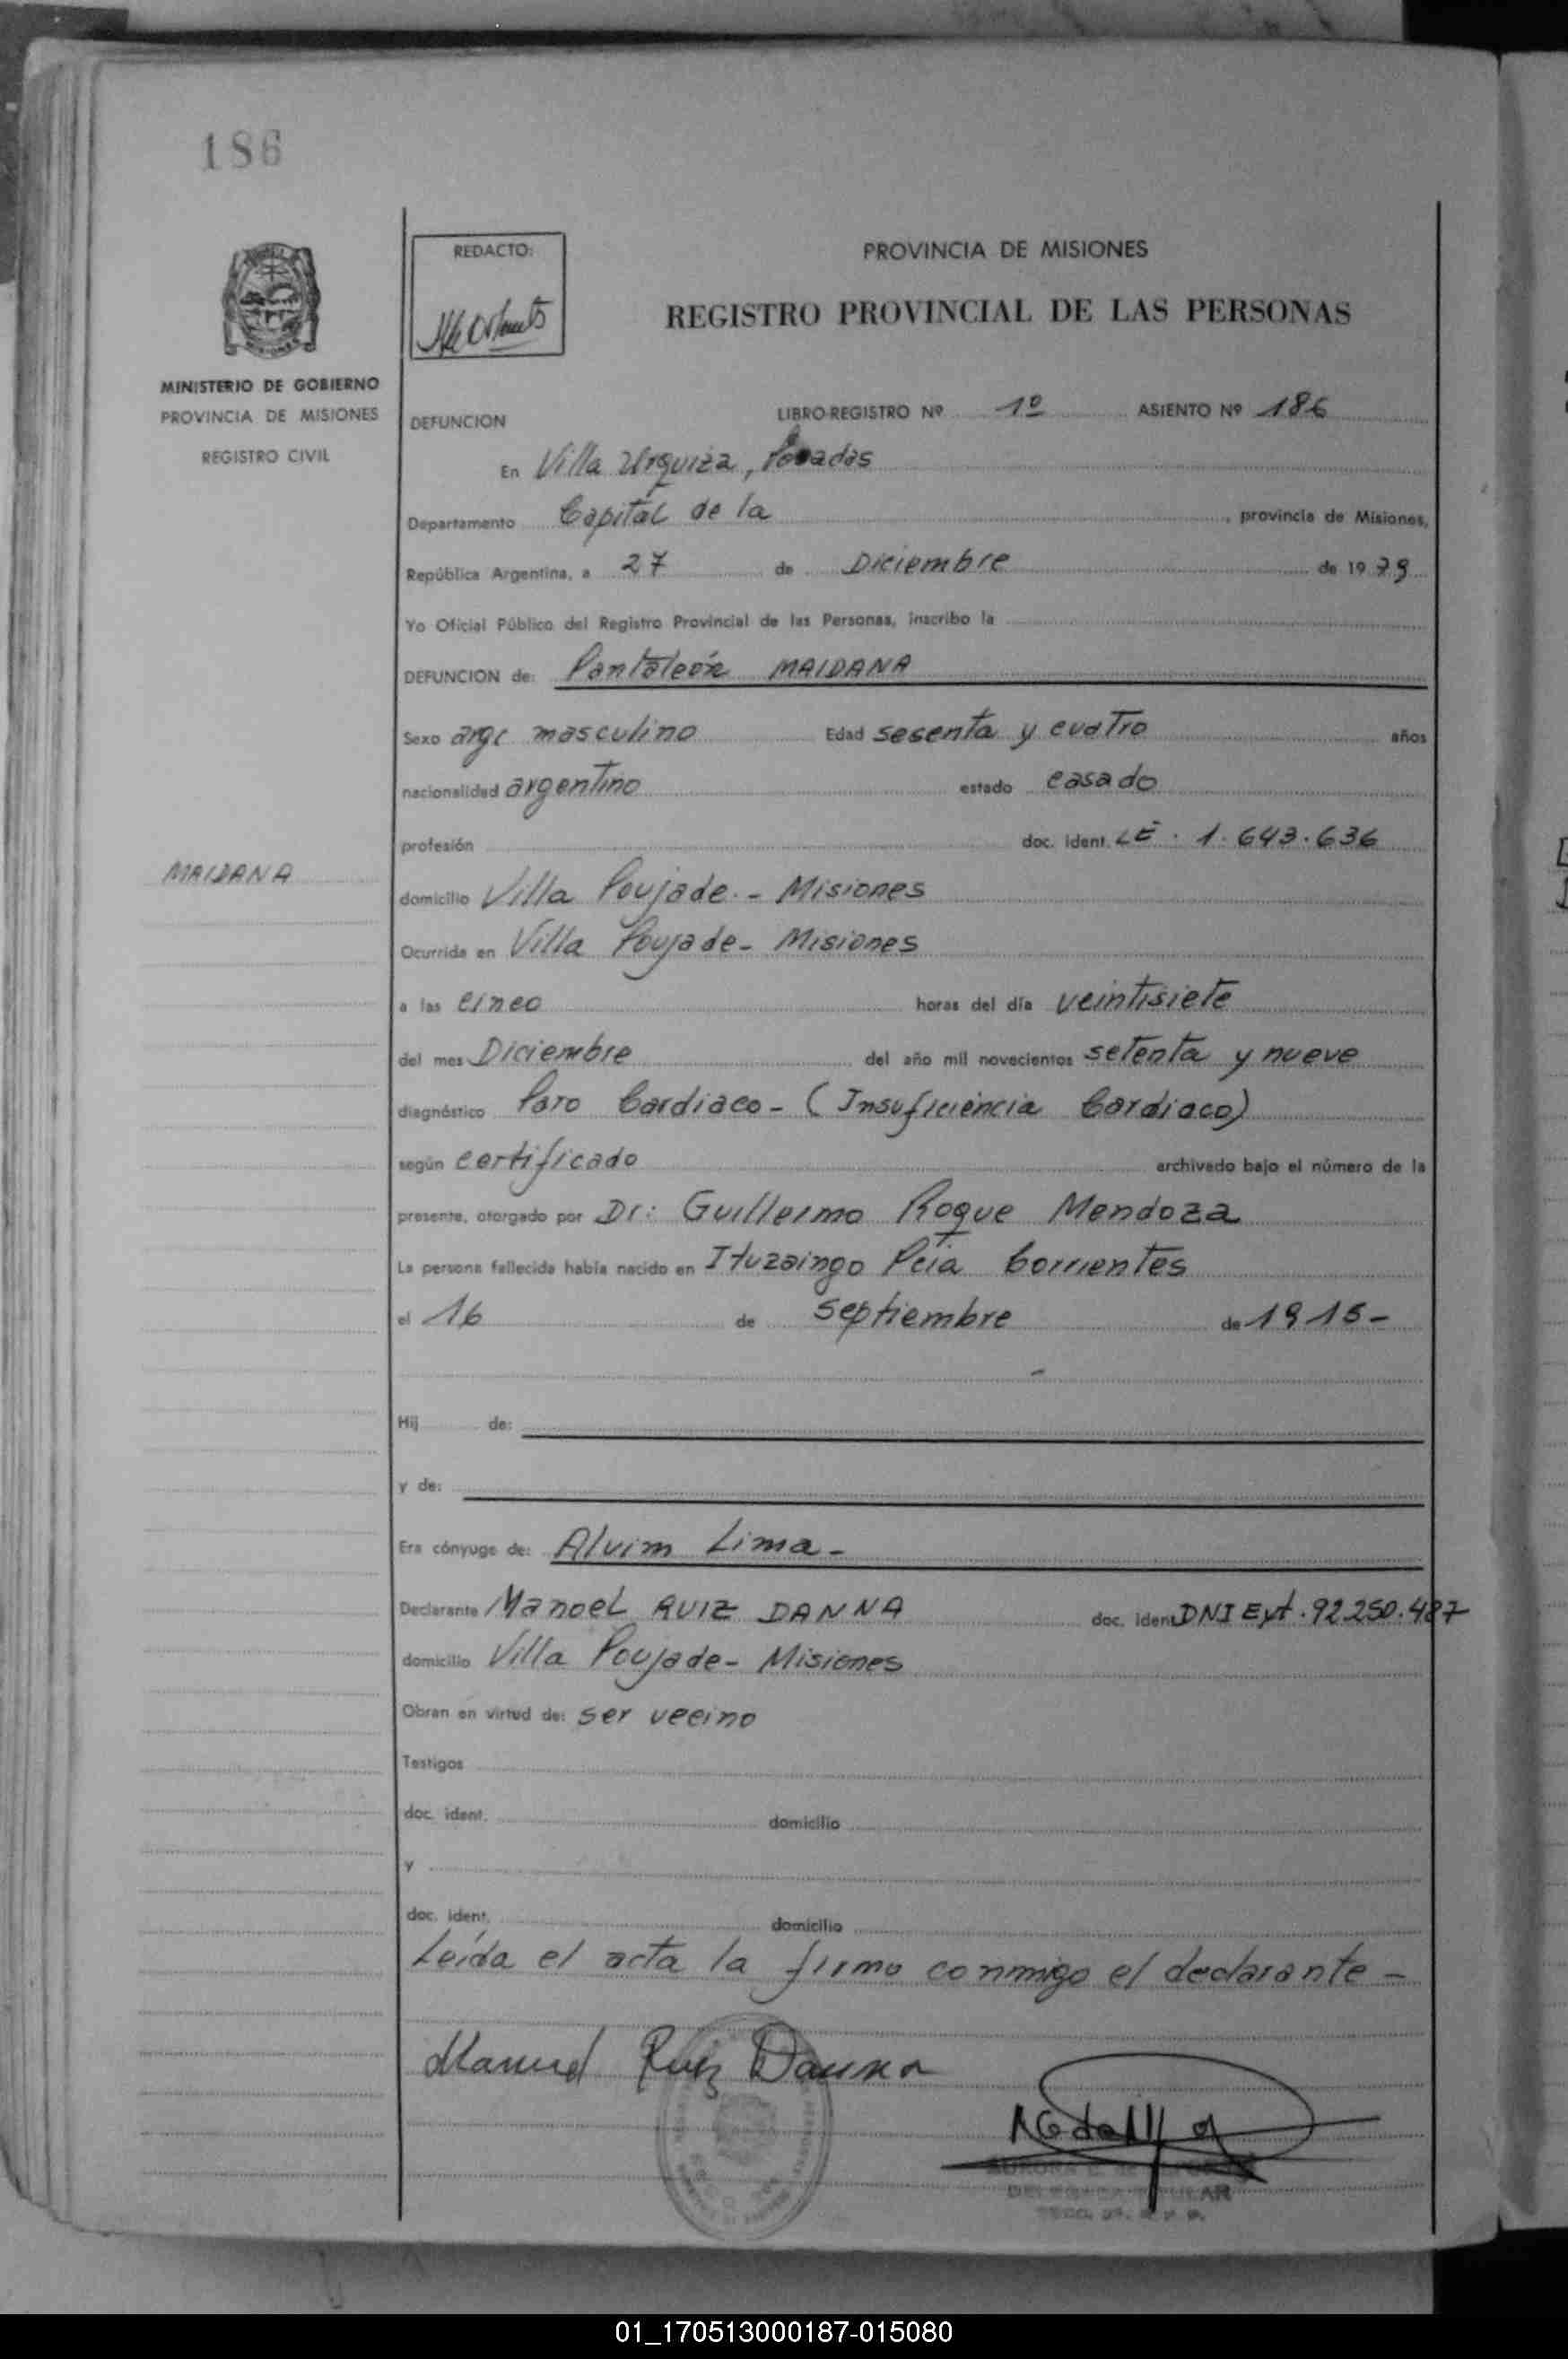 186
REDACTO:
PROVINCIA DE MISIONES
REGISTRO PROVINCIAL DE LAS PERSONAS
MINISTERIO DE GOBIERNO
PROVINCIA DE MISIONES
REGISTRO CIVIL
DEFUNCION LIBRO-REGISTRO Nº 1º ASIENTO Nº 186
En Villa Urquiza, Posadas
Departamento Capital de la, provincia de Misiones,
República Argentina, a 27 de Diciembre de 1979
Yo Oficial Público del Registro Provincial de las Personas, inscribo la
DEFUNCION de: Pantaleón MAIDANA
Sexo arge masculino Edad sesenta y cuatro años
nacionalidad argentino estado casado
profesión doc. ident. LE. 1.643.636
MAIDANA
domicilio Villa Poujade.- Misiones
Ocurrida en Villa Poujade- Misiones
a las cinco horas del día veintisiete
del mes Diciembre del año mil novecientos setenta y nueve
diagnóstico Paro Cardiaco- (Insuficiencia Cardiaco)
según certificado archivado bajo el número de la
presente, otorgado por Dr: Guillermo Roque Mendoza
La persona fallecida había nacido en Ituzaingo Pcia Corrientes
el 16 de septiembre de 1915-
Hij de:
y de:
Era cónyuge de: Alvim Lima-
Declarante Manoel RUIZ DANNA doc. ident DNI Ext. 92.250.487
domicilio Villa Poujade- Misiones
Obran en virtud de: ser vecino
Testigos
doc. ident. domicilio
y
doc. ident. domicilio
Leída el acta la firma conmigo el declarante-
Manuel Ruiz Danna
DELEGADA TITULAR
01_170513000187-015080